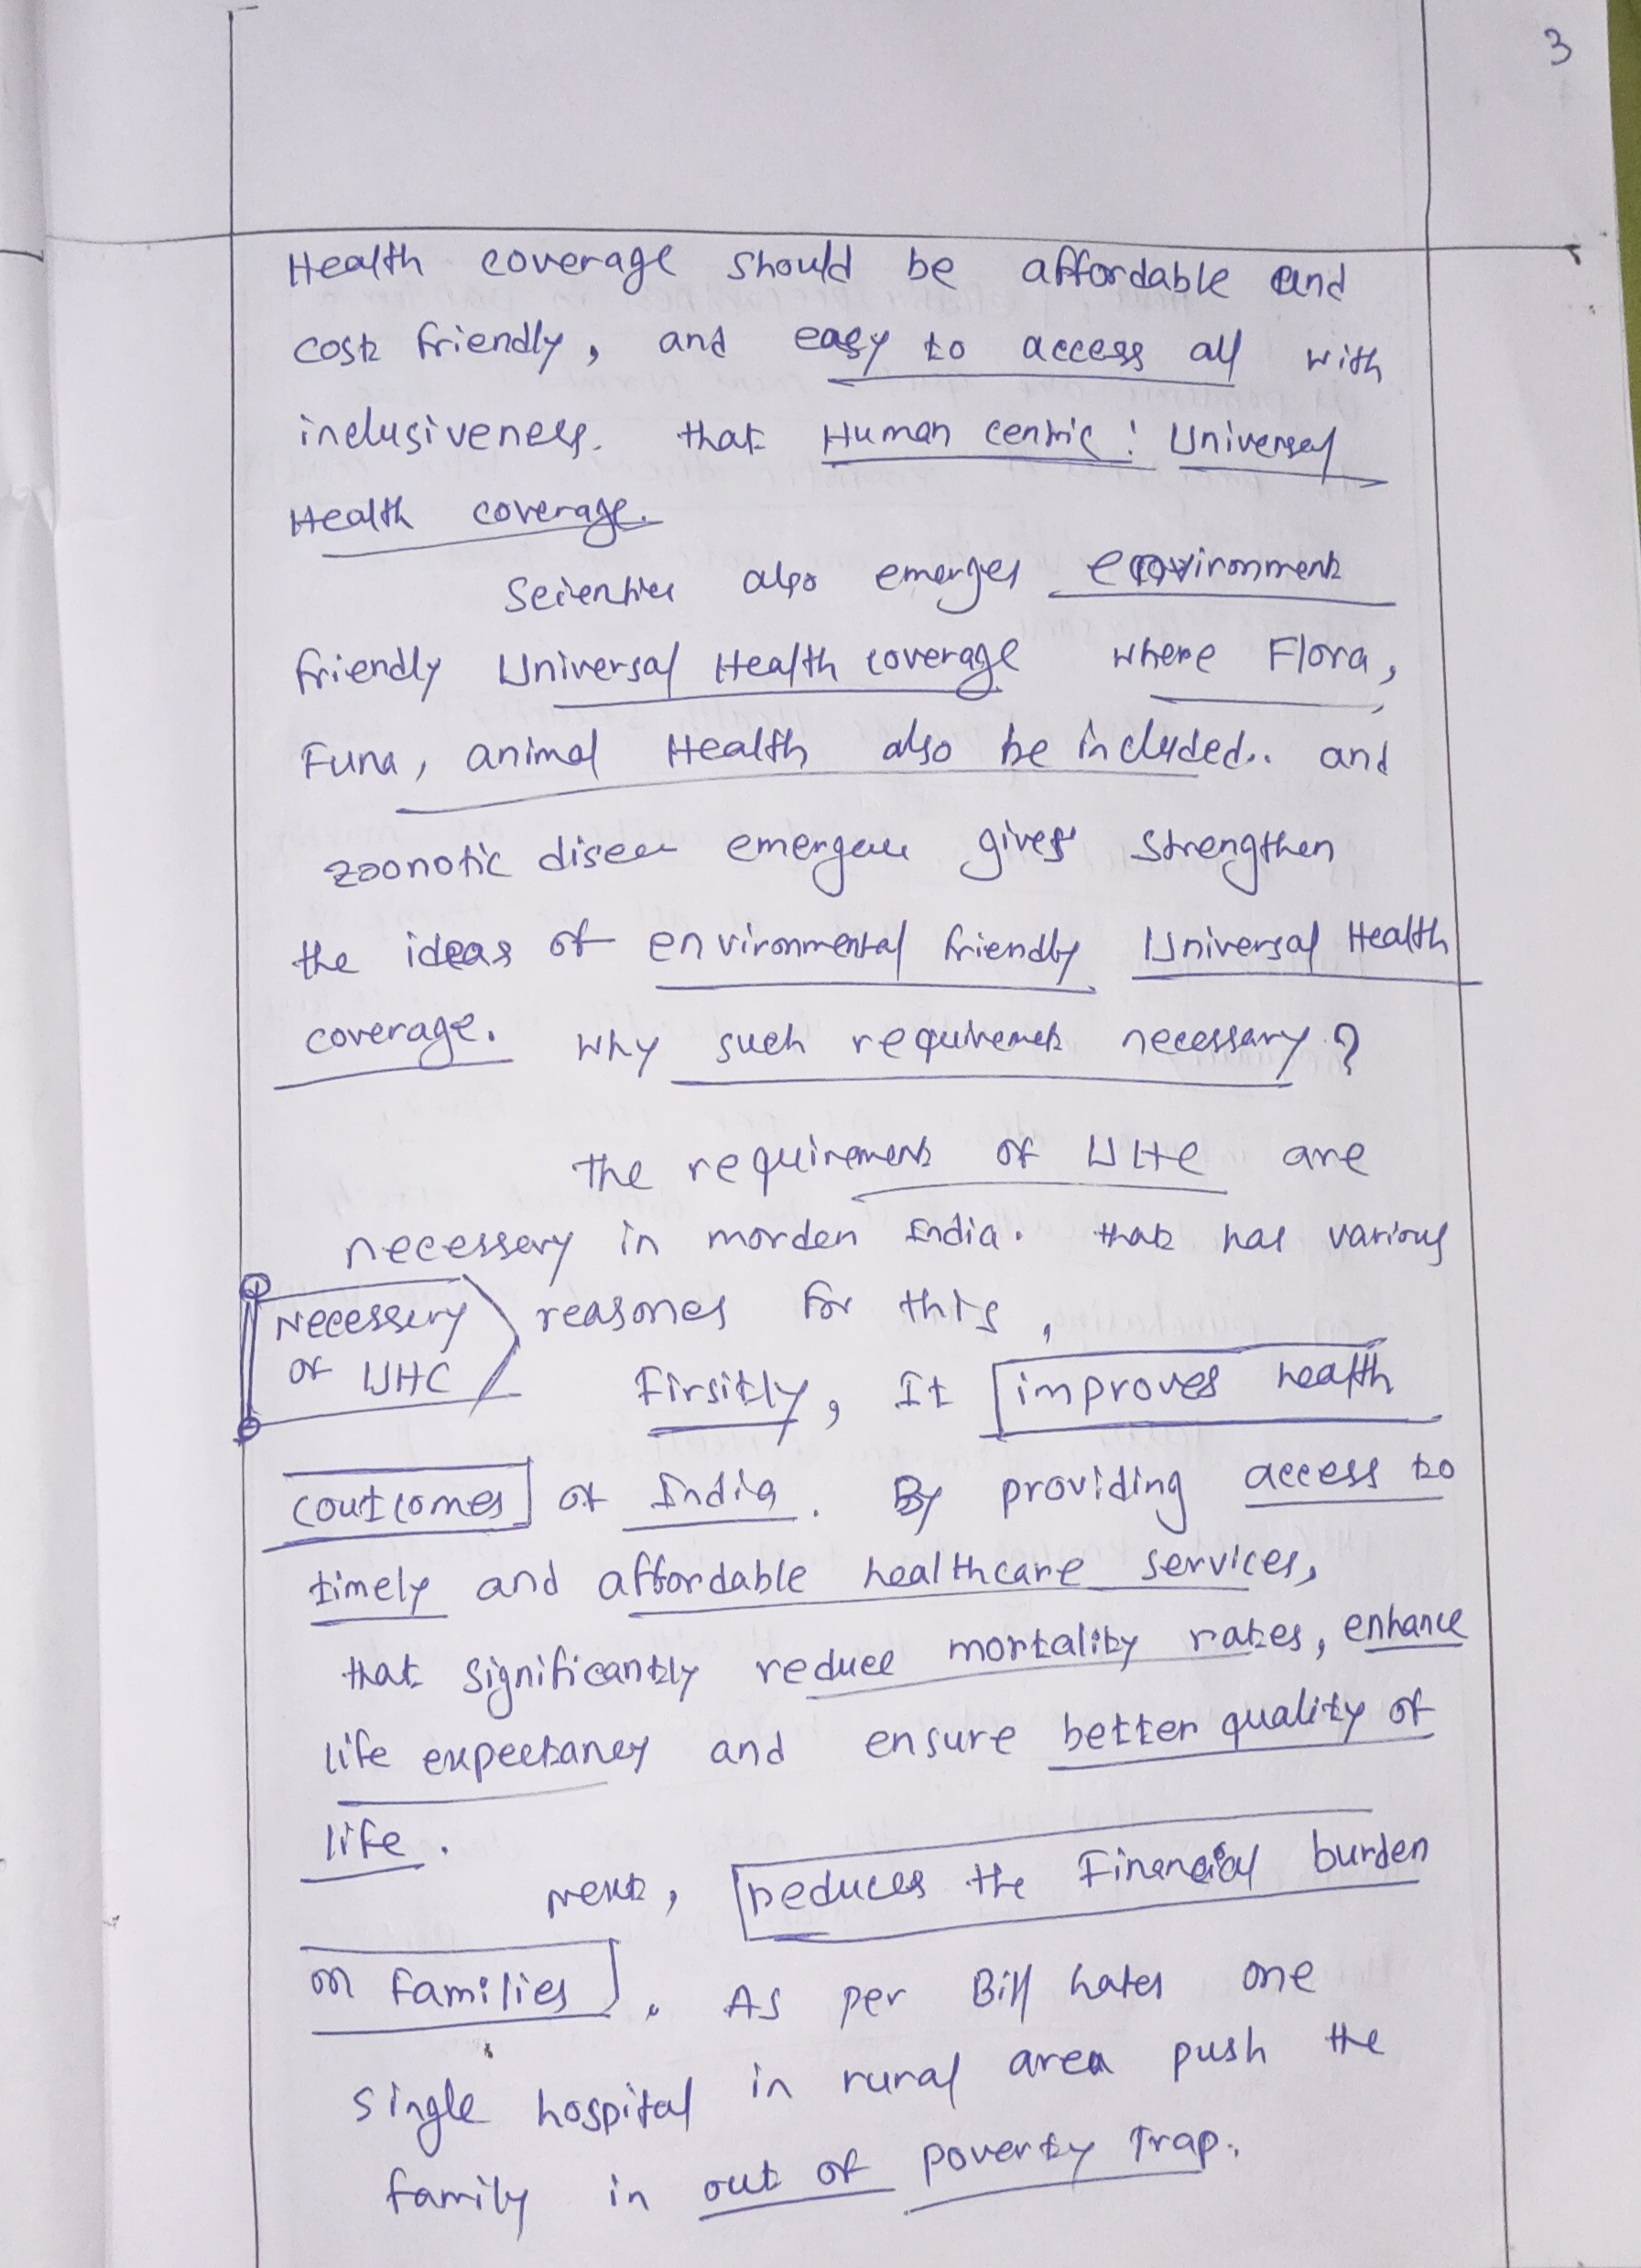 3
Health coverage should be affordable and
cost friendly, and easy to access all with
inclusiveness. that Human centric: Universal
Health coverage.
also emerges environment
friendly Universal Health coverage where Flora,
Funa, animal Health also be included.. and
zoonotic gives strengthen
the ideas of environmental friendly Universal Health
coverage. why such necessary?
the requirement of UHC are
necessery in morden India. that has various
Necessery
of UHC
reasones for this,
Firsitly, It improves health
outcomes of India. By providing access to
timely and affordable healthcare services,
that significantly reduce mortality rates, enhance
life expectancy and ensure better quality of
life.
Next, reduces the Financial burden
on families. As per Bill Gates one
single hospital in rural area push the
family in out of poverty Trap.